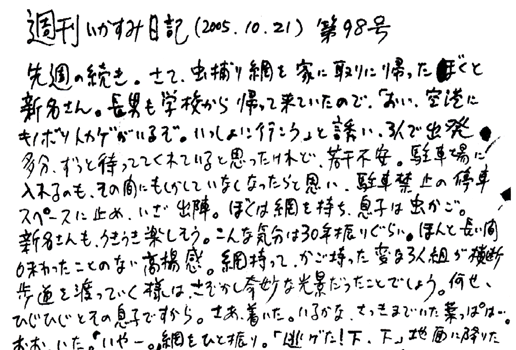 週刊いかすみ日記(2005.10.21) 第98号
先週の続き。さて、虫捕り網を家に取りに帰ったぼくと
新名さん。長男も学校から帰って来ていたので、「おい、空港に
キノボリトカゲがいるぞ。いっしょに行こう」と誘い、3人で出発。
多分、ずっと待っててくれていると思ったけれど、若干不安。駐車場に
入れるのも、その間にもしかしていなくなったらと思い、駐車禁止の停車
スペースに止め、いざ出陣。ぼくは網を持ち、息子は虫かご。
新名さんも、うきうき楽しそう。こんな気分は30年振りぐらい。ほんと長い間
味わったことのない高揚感。網持って、かご持った変な3人組が横断
歩道を渡っていく様は、さぞかし奇妙な光景だったことでしょう。何せ、
ひじひじとその息子ですから。さあ、着いた。いるかな、さっきまでいた葉っぱは…。
おお、いた。「いやー。」網をひと振り。「逃げた!下、下」地面に降りた